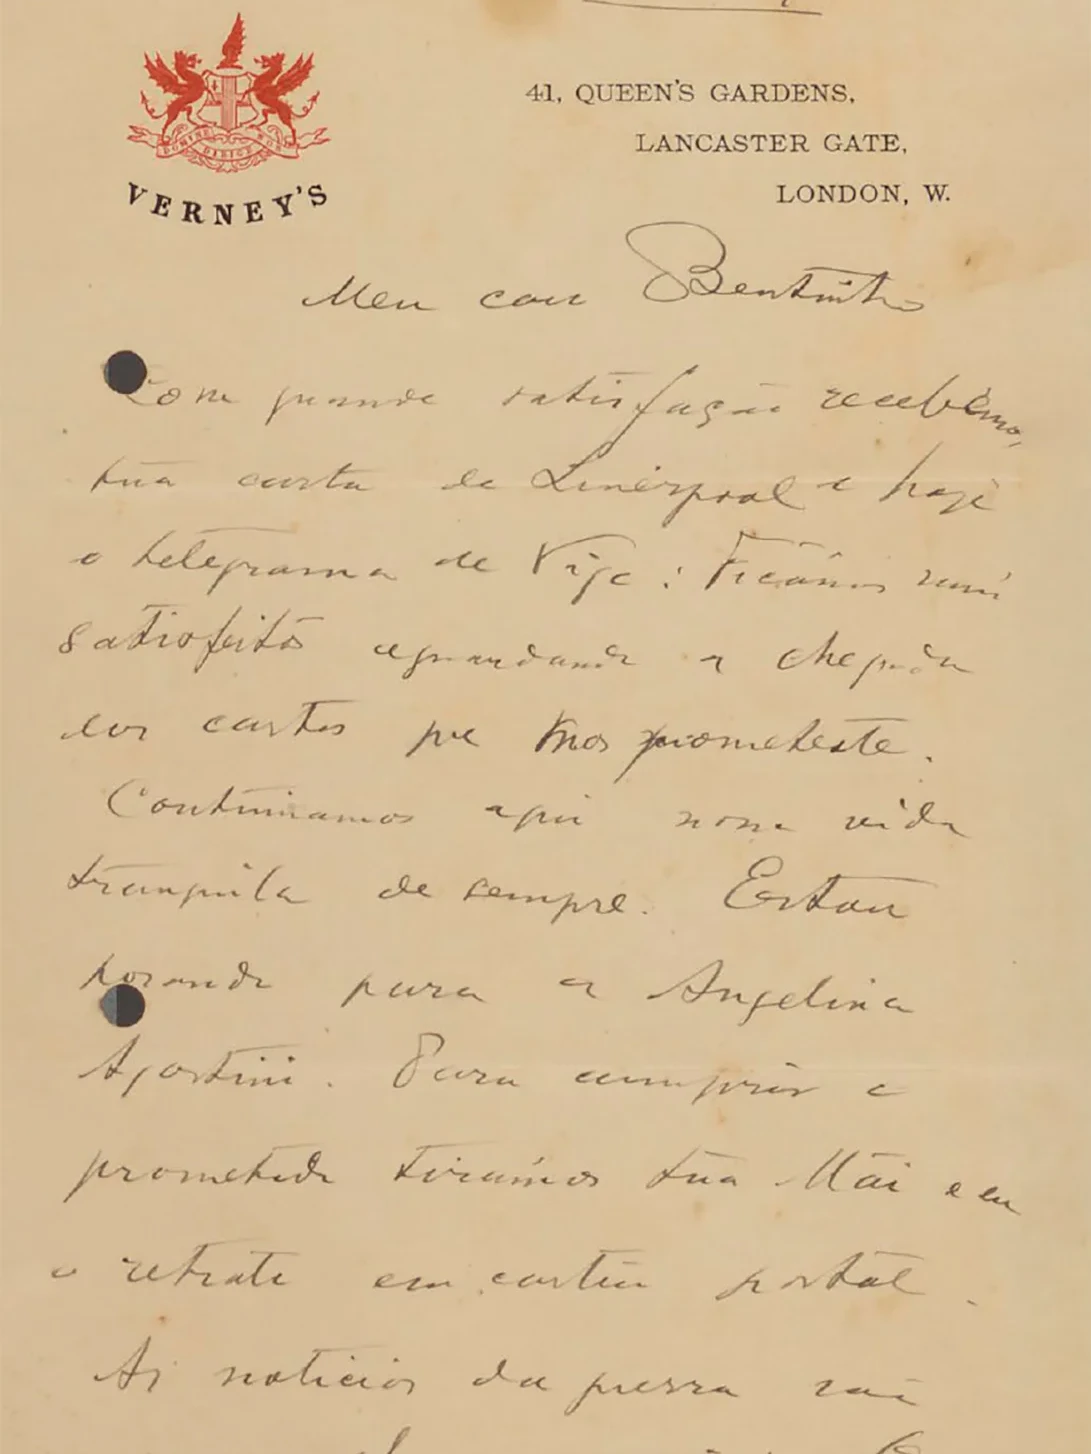 41, QUEEN'S GARDENS,
LANCASTER GATE,
LONDON, W.
DOMINE DIRIGE NOS
VERNEY'S
Meu caro Bentinho
Com grande satisfação recebemos
tua carta de Liverpool e hoje
o telegrama de Vigo: Ficámos mui
satisfeitos aguardando a chegada
das cartas que nos prometeste.
Continuamos aqui nossa vida
tranquila de sempre. Estou
posando para a Angelina
Agostini. Para cumprir o
prometido tirámos tua Mãi e eu
o retrato em cartão postal.
As noticias da guerra vão